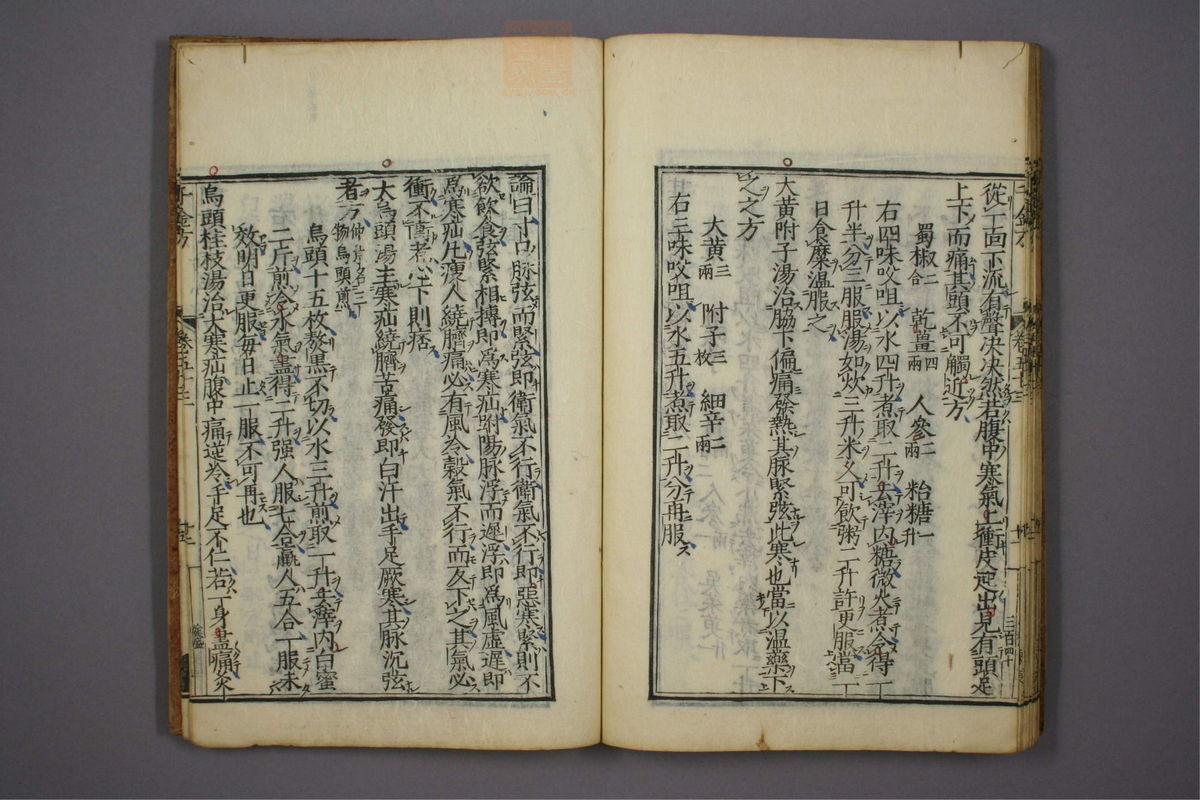 從一面下流有聲決決然若腹中寒氣上衝皮起出見有頭足
上下而痛其頭不可觸近方
蜀椒二合 乾薑四兩 人參二兩 粘糖一升
右四味㕮咀以水四升煮取二升去滓内糖微火煮令得一
升半分三服服湯如炊三升米乆可飲粥二升許更服當一
日食糜溫服之
大黃附子湯治脇下偏痛發熱其脉緊弦此寒也當以溫藥下
之之方
大黃三兩 附子三枚 細辛二兩
右三味㕮咀以水五升煮取二升分再服
論曰寸口脉弦而緊弦即衛氣不行衛氣不行即惡寒緊則不
欲飲食弦緊相搏即爲寒疝趺陽脉浮而遲浮即爲風虛遲即
爲寒疝凡瘦人繞臍痛必有風冷穀氣不行而反下之其氣必
衝不衝者心下則痞
大烏頭湯主寒疝繞臍苦痛發即白汗出手足厥寒其脉沉弦
者方
烏頭十五枚熬黑不切以水三升煎取一升去滓内白蜜
二斤煎令水氣盡得二升强人服七合羸人五合一服未
效明日更服每日止一服不可再也
烏頭桂枝湯治大寒疝腹中痛逆冷手足不仁若一身盡痛灸